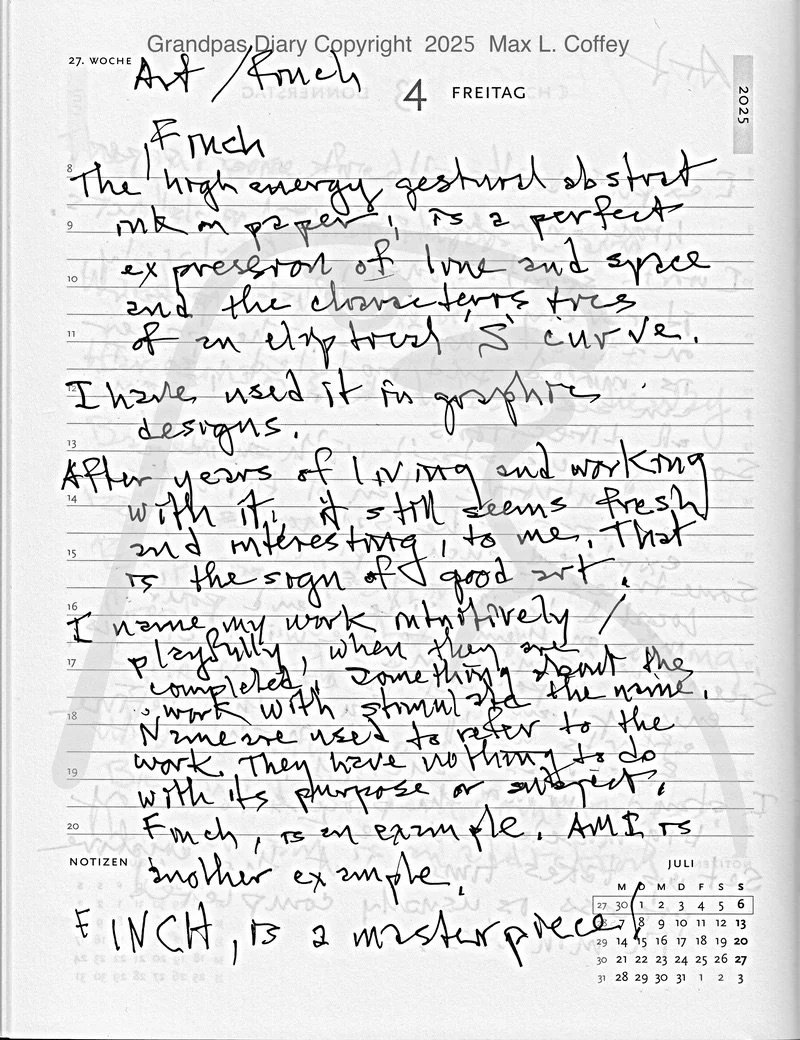 Grandpas Diary Copyright 2025 Max L. Coffey
27. WOCHE
Art / Finch
4 FREITAG
2025
Finch
8
The high energy gestural abstrat
ink on paper, is a perfect
9
expression of line and space
10
and the characteristres
of an eliptical 'S' curve.
11
I have used it in graphic
12
designs.
13
After years of living and working
14
with it, it still seems fresh
and interesting, to me. That
15
is the sign of good art.
16
I name my work intuitively /
playfully, when they are
17
completed. Something about the
work with stimulate the name.
18
Name are used to refer to the
work. They have nothing to do
19
with its purpose or subject.
20
Finch, is an example. AMI is
another example.
NOTIZEN
FINCH, is a masterpiece!
JULI
M D M D F S S
27 30 1 2 3 4 5 6
28 7 8 9 10 11 12 13
29 14 15 16 17 18 19 20
30 21 22 23 24 25 26 27
31 28 29 30 31 1 2 3